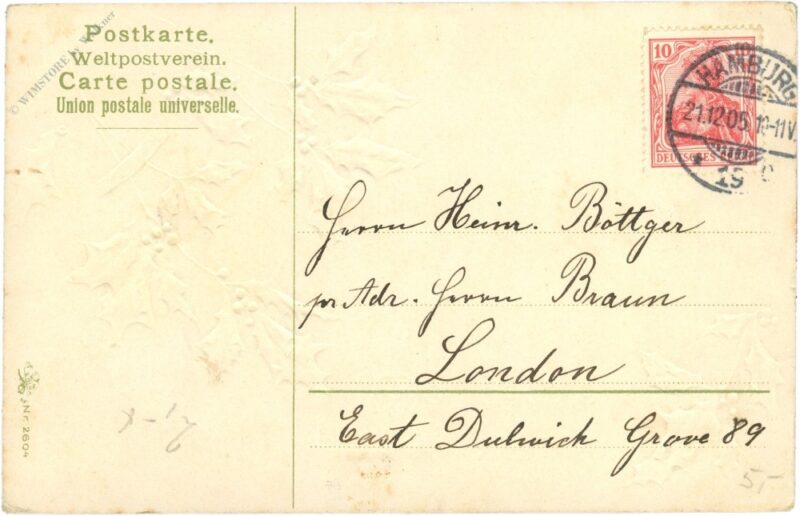 © WIMSTORE by W. Eckner
Postkarte.
Weltpostverein.
Carte postale.
Union postale universelle.
10
DEUTSCHES
HAMBURG
21.12.05. 10-11V.
* 19
Herrn Heinr. Böttger
pr Adr. Herrn Braun
London
East Dulwich Grove 89
Nr. 2604
5,-